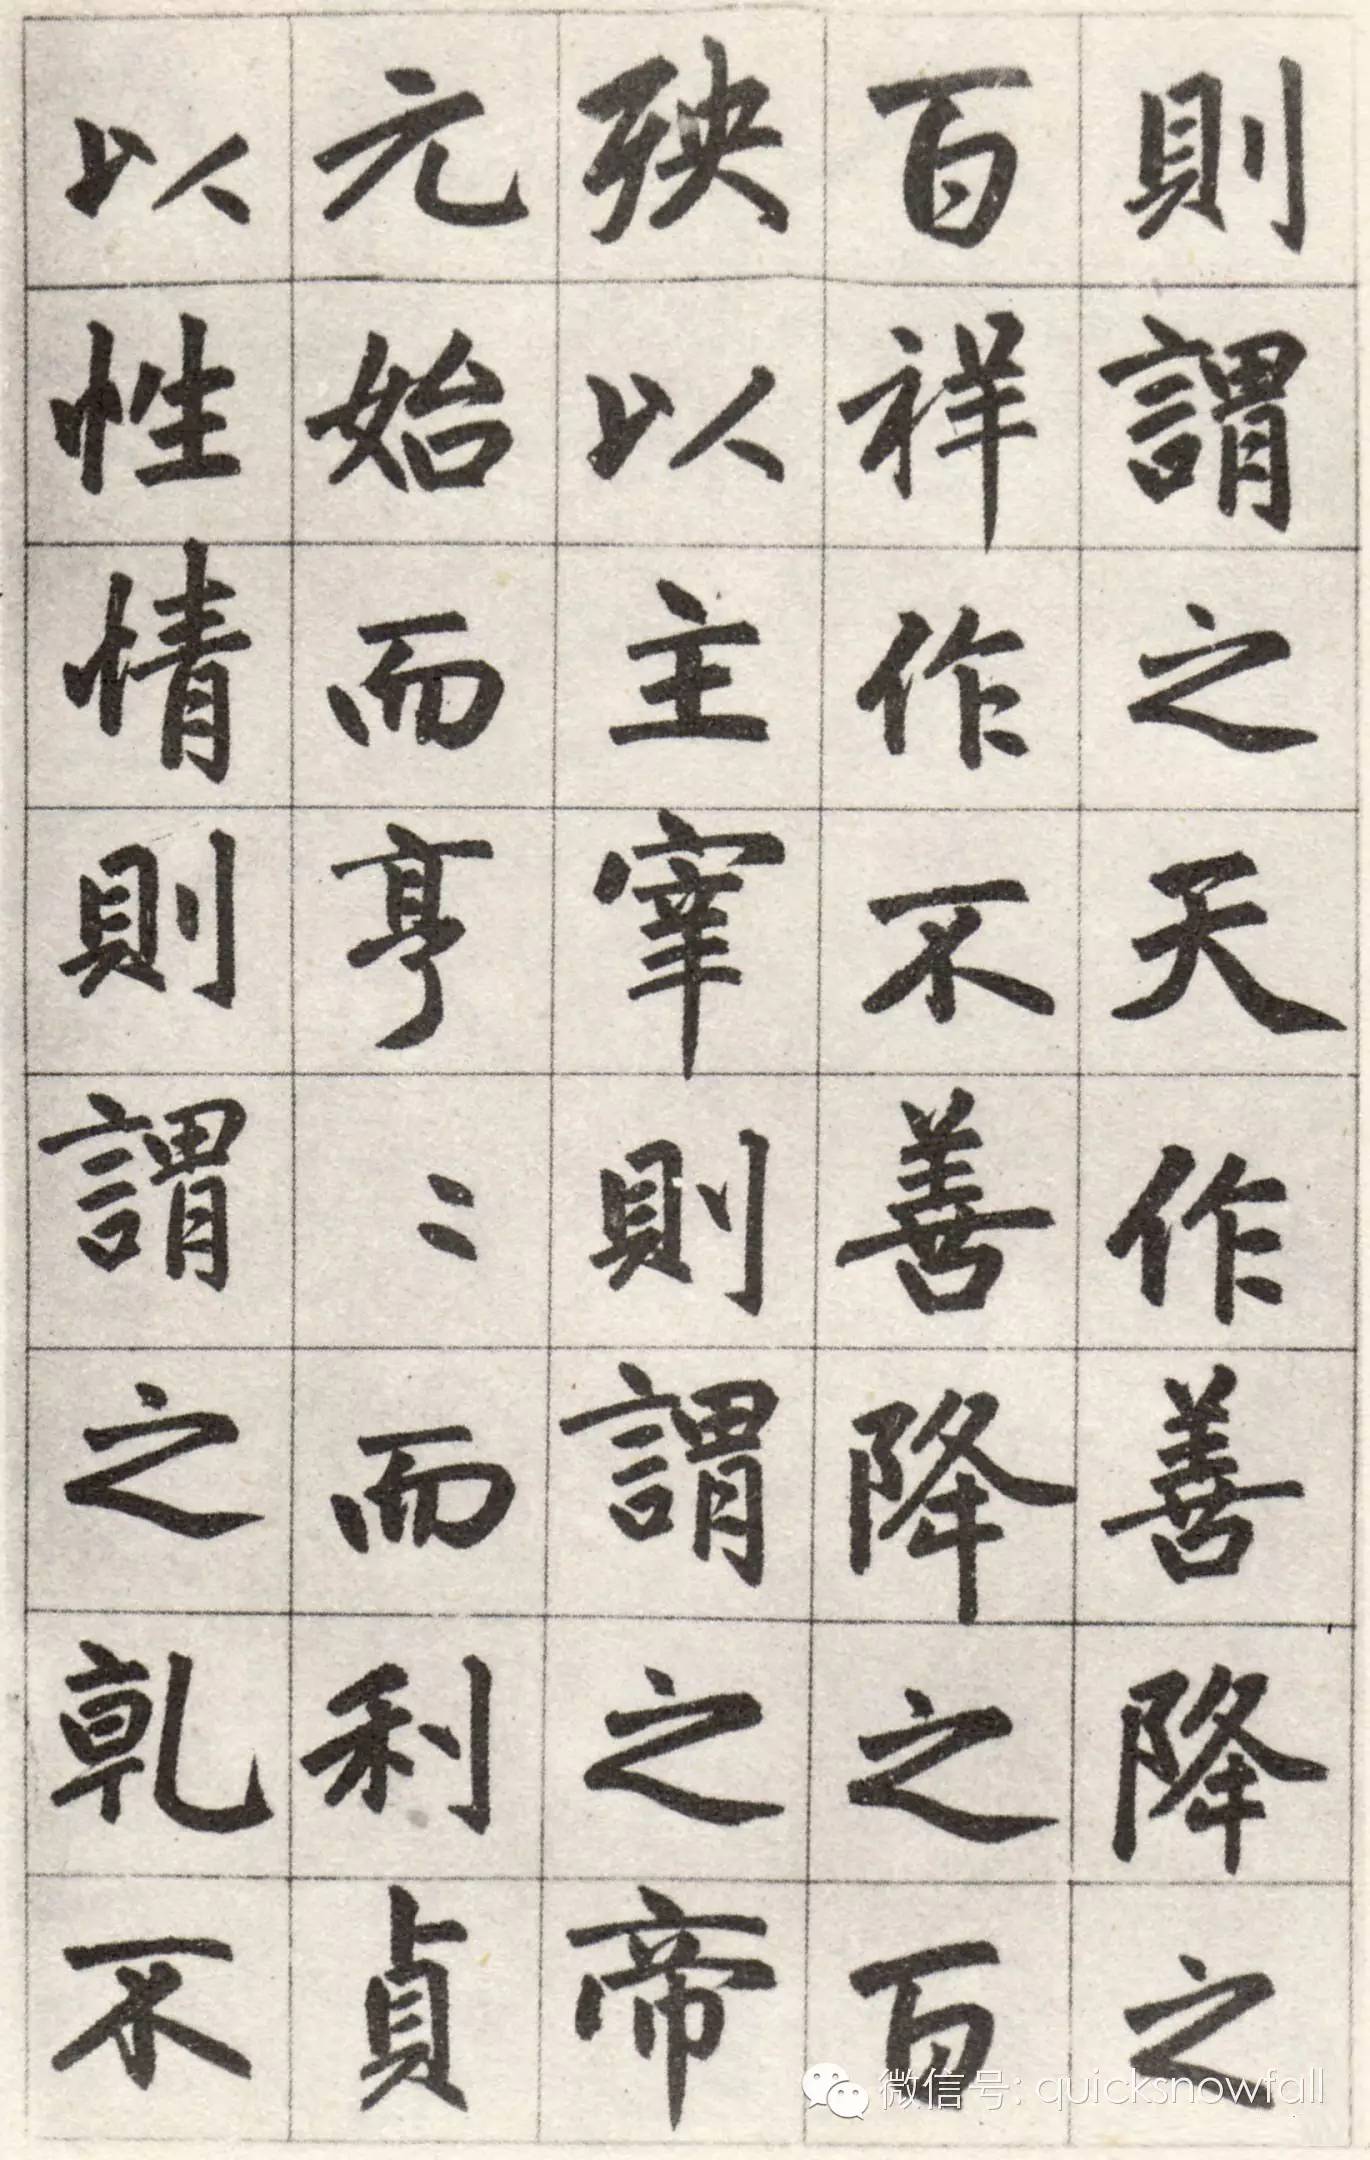 則謂之天作善降之
百祥作不善降之百
殃以主宰則謂之帝
元始而亨〻而利貞
以性情則謂之乹不
微信号: quicksnowfall